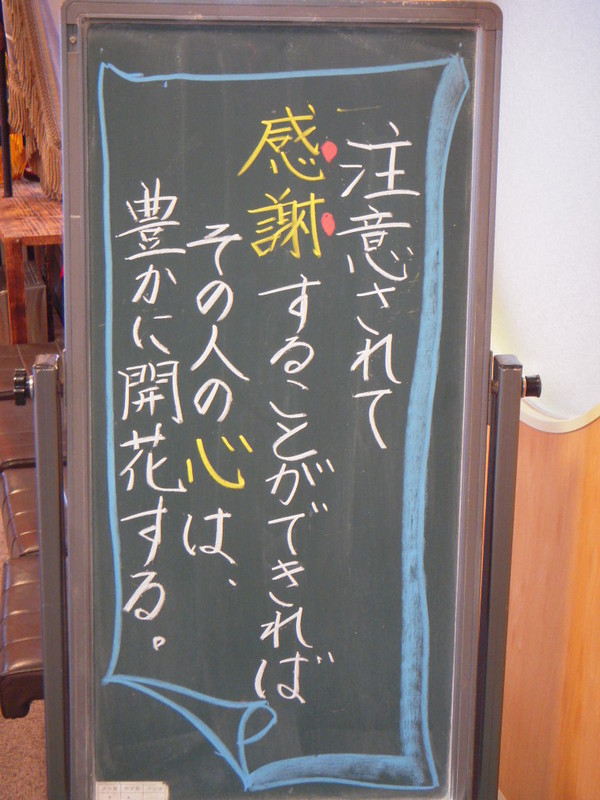 注意されて
感謝することができれば
その人の心は、
豊かに開花する。